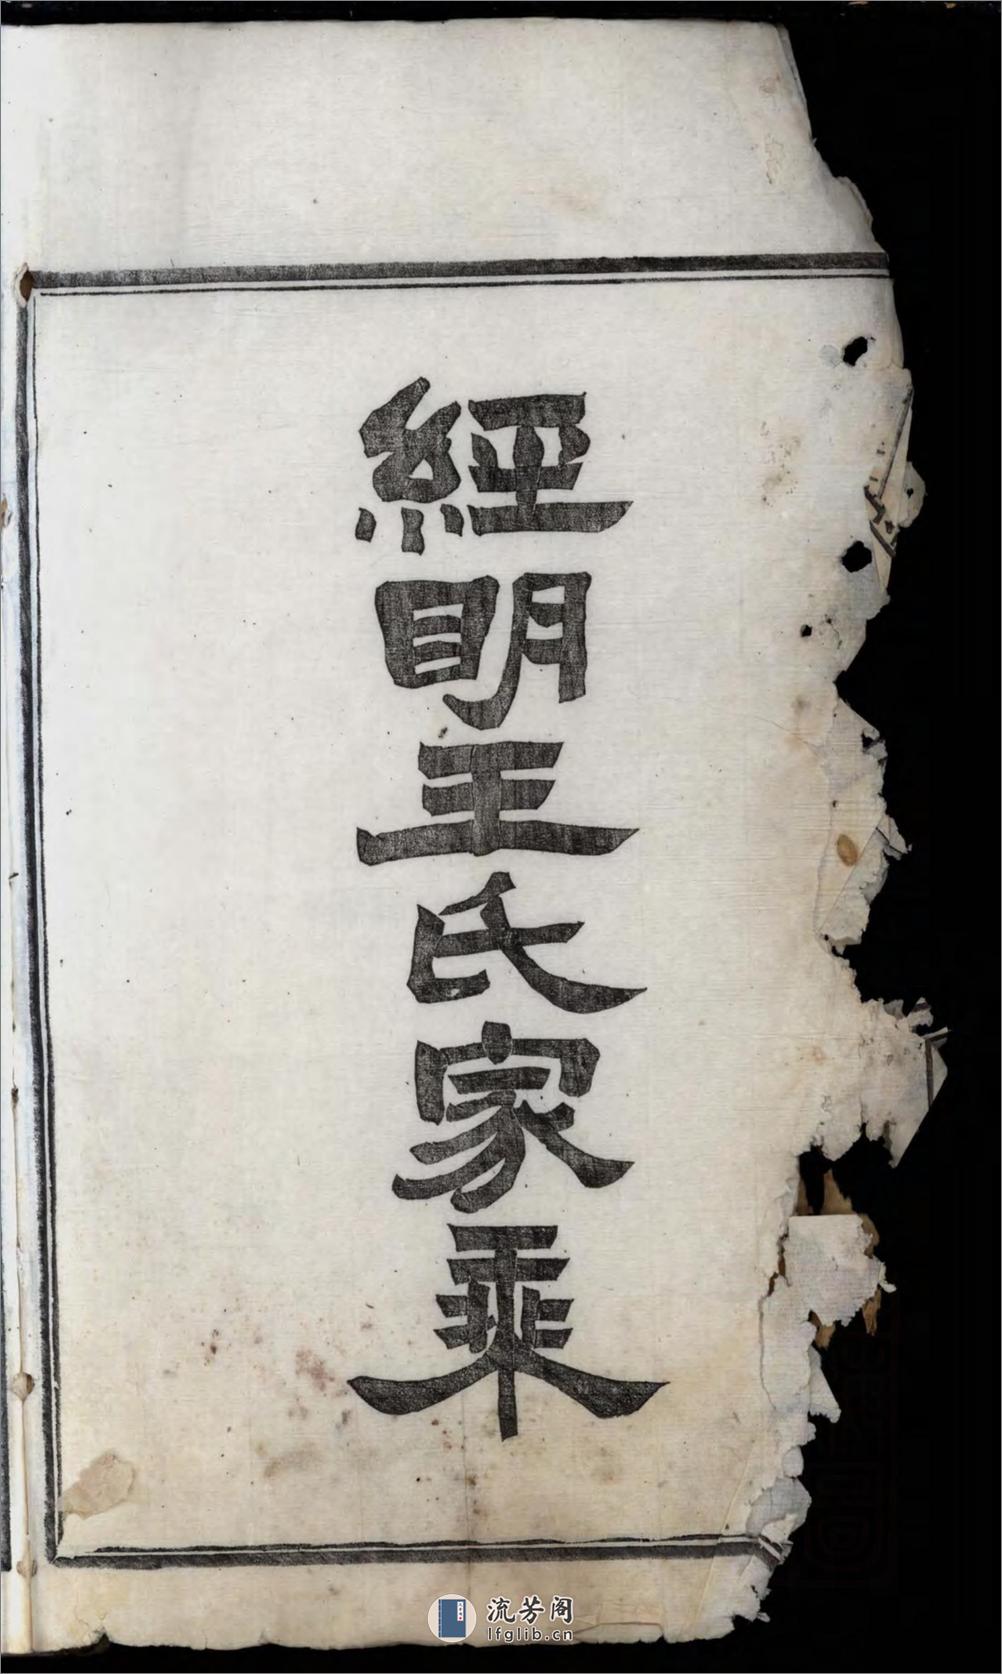 經明王氏家乘
流芳阁
lfglib.cn